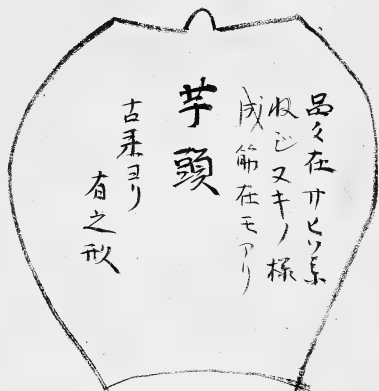 品々在サビツ气
ねじヌキノ様
成筋在モアリ
芋頭
古来ヨリ
有之形